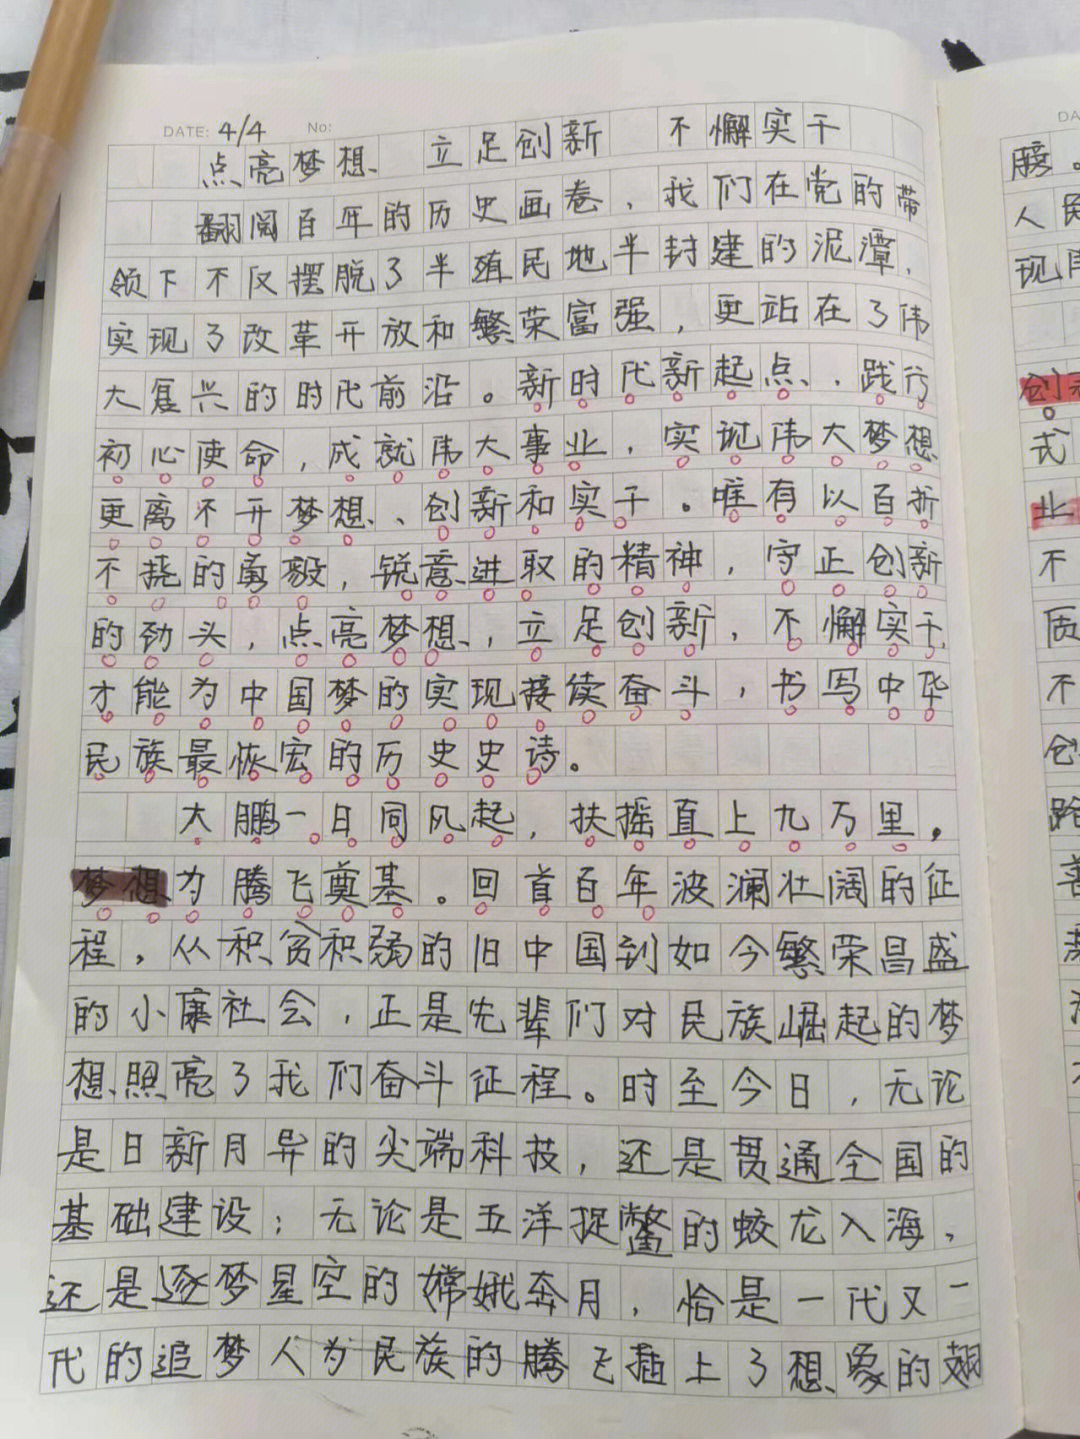 DATE: 4/4 No:
点亮梦想 立足创新 不懈实干
翻阅百年的历史画卷，我们在党的带
领下不仅摆脱了半殖民地半封建的泥潭，
实现了改革开放和繁荣富强，更站在了伟
大复兴的时代前沿。新时代新起点，践行
初心使命，成就伟大事业，实现伟大梦想
更离不开梦想、创新和实干。唯有以百折
不挠的勇毅，锐意进取的精神，守正创新
的劲头，点亮梦想，立足创新，不懈实干，
才能为中国梦的实现接续奋斗，书写中华
民族最恢宏的历史史诗。
大鹏一日同风起，扶摇直上九万里。
梦想为腾飞奠基。回首百年波澜壮阔的征
程，从积贫积弱的旧中国到如今繁荣昌盛
的小康社会，正是先辈们对民族崛起的梦
想照亮了我们奋斗征程。时至今日，无论
是日新月异的尖端科技，还是贯通全国的
基础建设；无论是五洋捉鳖的蛟龙入海，
还是逐梦星空的嫦娥奔月，恰是一代又一
代的追梦人为民族的腾飞插上了想象的翅
DA
膀。
人民
现
创新
式
业
不
质
不
创
路
善